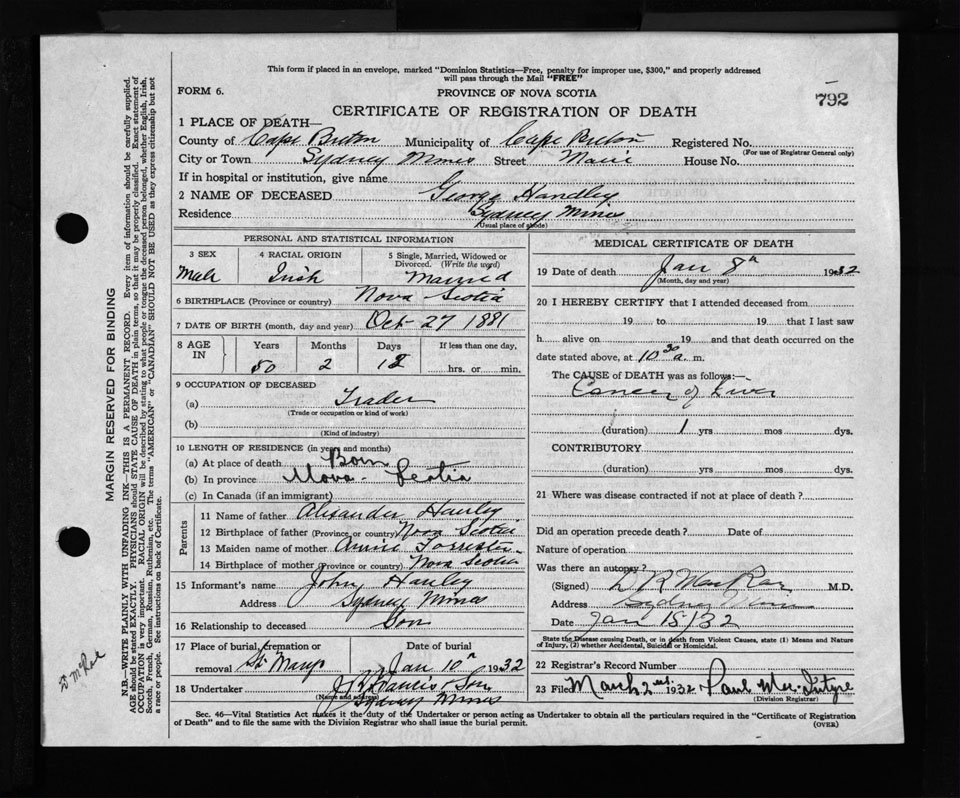 This form if placed in an envelope, marked "Dominion Statistics—Free, penalty for improper use, $300," and properly addressed
will pass through the Mail "FREE"
FORM 6.
PROVINCE OF NOVA SCOTIA
792
CERTIFICATE OF REGISTRATION OF DEATH
1 PLACE OF DEATH—
County of Cape Breton Municipality of Cape Breton Registered No.
(For use of Registrar General only)
City or Town Sydney Mines Street Main House No.
If in hospital or institution, give name
2 NAME OF DECEASED George Handley
Residence Sydney Mines
(Usual place of abode)
PERSONAL AND STATISTICAL INFORMATION
3 SEX 4 RACIAL ORIGIN 5 Single, Married, Widowed or
Divorced. (Write the word)
Male Irish Married
6 BIRTHPLACE (Province or country) Nova Scotia
7 DATE OF BIRTH (month, day and year) Oct 27 1881
8 AGE IN Years Months Days If less than one day,
50 2 12 hrs. or min.
9 OCCUPATION OF DECEASED
(a) Trader
(Trade or occupation or kind of work)
(b)
(Kind of industry)
10 LENGTH OF RESIDENCE (in years and months)
(a) At place of death Born
(b) In province Nova - Scotia
(c) In Canada (if an immigrant)
Parents
11 Name of father Alexander Hanley
12 Birthplace of father (Province or country) Nova Scotia
13 Maiden name of mother Annie Forrester
14 Birthplace of mother (Province or country) Nova Scotia
15 Informant's name John Hanley
Address Sydney Mines
16 Relationship to deceased Son
17 Place of burial, cremation or Date of burial
removal St. Marys Jan 10th 1932
18 Undertaker & Son
(Name and address) Sydney Mines
MEDICAL CERTIFICATE OF DEATH
19 Date of death Jan 8th 1932
(Month, day and year)
20 I HEREBY CERTIFY that I attended deceased from
19 to 19 that I last saw
h alive on 19 and that death occurred on the
date stated above, at 10 30 a. m.
The CAUSE of DEATH was as follows:—
Cancer of Liver
(duration) 1 yrs mos dys.
CONTRIBUTORY
(duration) yrs mos dys.
21 Where was disease contracted if not at place of death?
Did an operation precede death? Date of
Nature of operation
Was there an autopsy?
(Signed) M.D.
Address Sydney Mines
Date Jan 15/32
State the Disease causing Death, or in death from Violent Causes, state (1) Means and Nature
of Injury, (2) whether Accidental, Suicidal or Homicidal.
22 Registrar's Record Number
23 Filed March 2nd 1932 Paul McIntyre
(Division Registrar)
Sec. 46—Vital Statistics Act makes it the duty of the Undertaker or person acting as Undertaker to obtain all the particulars required in the "Certificate of Registration
of Death" and to file the same with the Division Registrar who shall issue the burial permit.
(OVER)
MARGIN RESERVED FOR BINDING
N.B.—WRITE PLAINLY WITH UNFADING INK—THIS IS A PERMANENT RECORD. Every item of information should be carefully supplied.
AGE should be stated EXACTLY. PHYSICIANS should STATE CAUSE OF DEATH in plain terms, so that it may be properly classified. Exact statement of
OCCUPATION is very important. RACIAL ORIGIN will be described by stating to what people or tongue the deceased person belonged, whether English, Irish,
Scotch, French, German, Russian, Ruthenian, etc. The terms "AMERICAN" or "CANADIAN" SHOULD NOT BE USED as they express citizenship but not
a race or people. See instructions on back of Certificate.